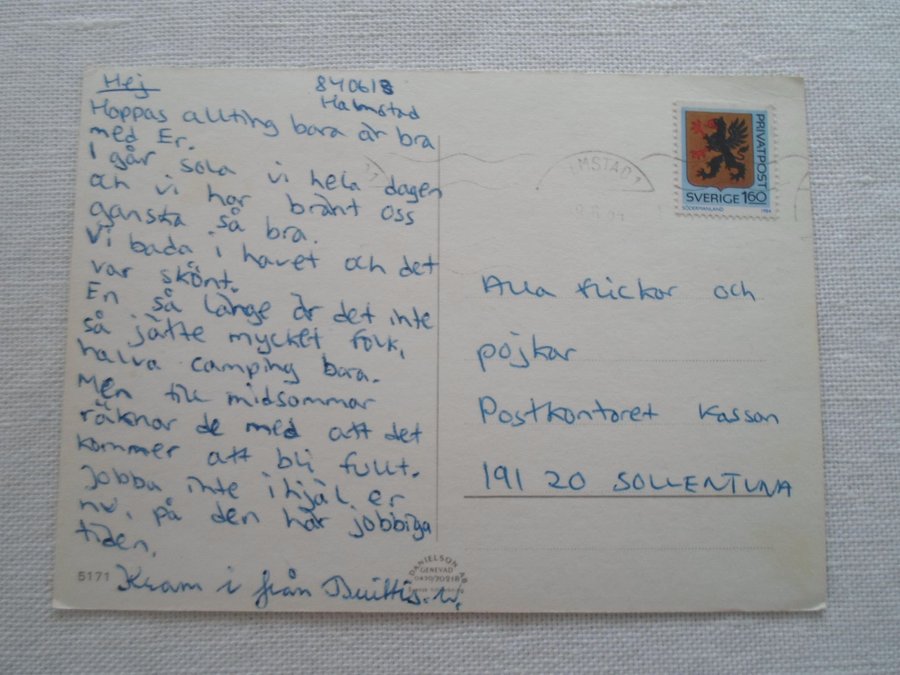 Hej
840618
Halmstad
Hoppas allting bara är bra
med Er.
I går sola vi hela dagen
och vi har bränt oss
ganska så bra.
Vi bada i havet och det
var skönt.
En så länge är det inte
så jätte mycket folk,
halva camping bara.
Men till midsommar
räknar de med att det
kommer att bli fullt.
Jobba inte ihjäl er
nu, på den här jobbiga
tiden.
Kram i från
5171
DANIELSON AB
GENEVAD
0430/70218
MSTAD 1
PRIVATPOST
SVERIGE 160
SÖDERMANLAND 1984
Alla flickor och
pojkar
Postkontoret Kassan
191 20 SOLLENTUNA